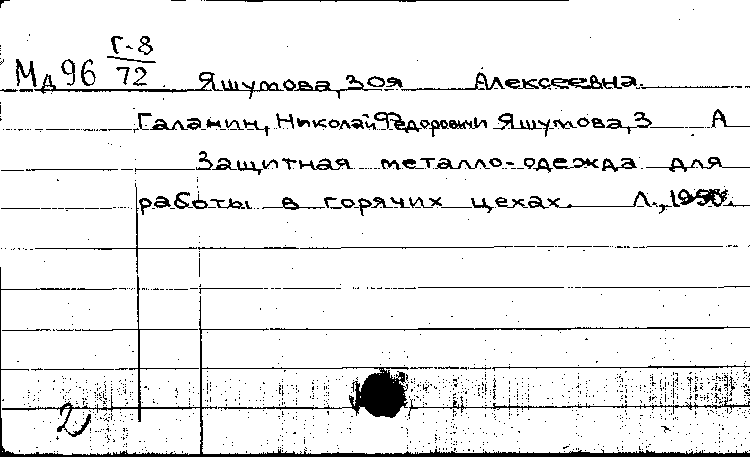 Г-8
Мд96 72 Яшумова, Зоя Алексеевна.
Галанин, Николай Федорович и Яшумова, З А
Защитная металло-одежда для
работы в горячих цехах. Л., 1950.
2